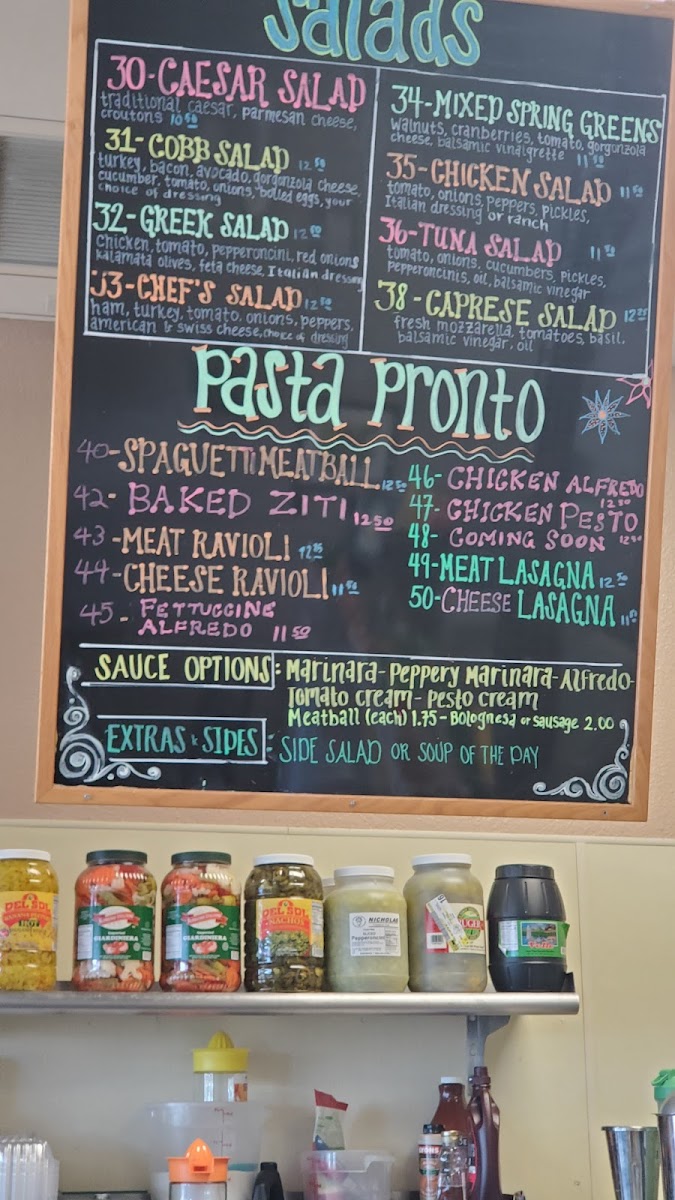 Salads
30-CAESAR SALAD
traditional caesar, parmesan cheese,
croutons 10 50
31-COBB SALAD 12 50
turkey, bacon, avocado, gorgonzola cheese,
cucumber, tomato, onions, boiled eggs, your
choice of dressing
32-GREEK SALAD 12 00
chicken, tomato, pepperoncini, red onions
kalamata olives, feta cheese, Italian dressing
33-CHEF'S SALAD 12 50
ham, turkey, tomato, onions, peppers,
american & swiss cheese, choice of dressing
34-MIXED SPRING GREENS
walnuts, cranberries, tomato, gorgonzola
cheese, balsamic vinaigrette 11 50
35-CHICKEN SALAD 11 50
tomato, onions, peppers, pickles,
Italian dressing or ranch
36-TUNA SALAD 11 50
tomato, onions, cucumbers, pickles,
pepperoncinis, oil, balsamic vinegar
38-CAPRESE SALAD 12 25
fresh mozzarella, tomatoes, basil,
balsamic vinegar, oil
Pasta Pronto
40-SPAGUETTI MEATBALL 12 50
42-BAKED ZITI 12 50
43-MEAT RAVIOLI
44-CHEESE RAVIOLI 11 50
45-FETTUCCINE
ALFREDO 11 50
46-CHICKEN ALFREDO
12 50
47-CHICKEN PESTO
48-COMING SOON
49-MEAT LASAGNA 12 50
50-CHEESE LASAGNA
SAUCE OPTIONS: Marinara-Peppery Marinara-Alfredo-
Tomato cream-Pesto cream
Meatball (each) 1.75-Bolognesa or sausage 2.00
EXTRAS & SIDES: SIDE SALAD OR SOUP OF THE DAY
HOT
GIARDINIERA
GIARDINIERA
DEL SOL
NACHOS
NICHOLAS
Pepperoncini